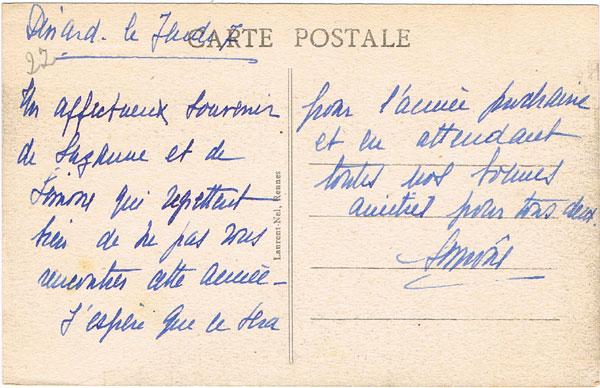 Dinard. le Jeudi
CARTE POSTALE
22
Un affectueux souvenir
de Suzanne et de
Simone qui regrettent
bien de ne pas vous
rencontrer cette année –
J'espère que ce sera
Laurent-Nel, Rennes
pour l'année prochaine
et en attendant
toutes nos bonnes
amitiés pour tous deux.
Simone